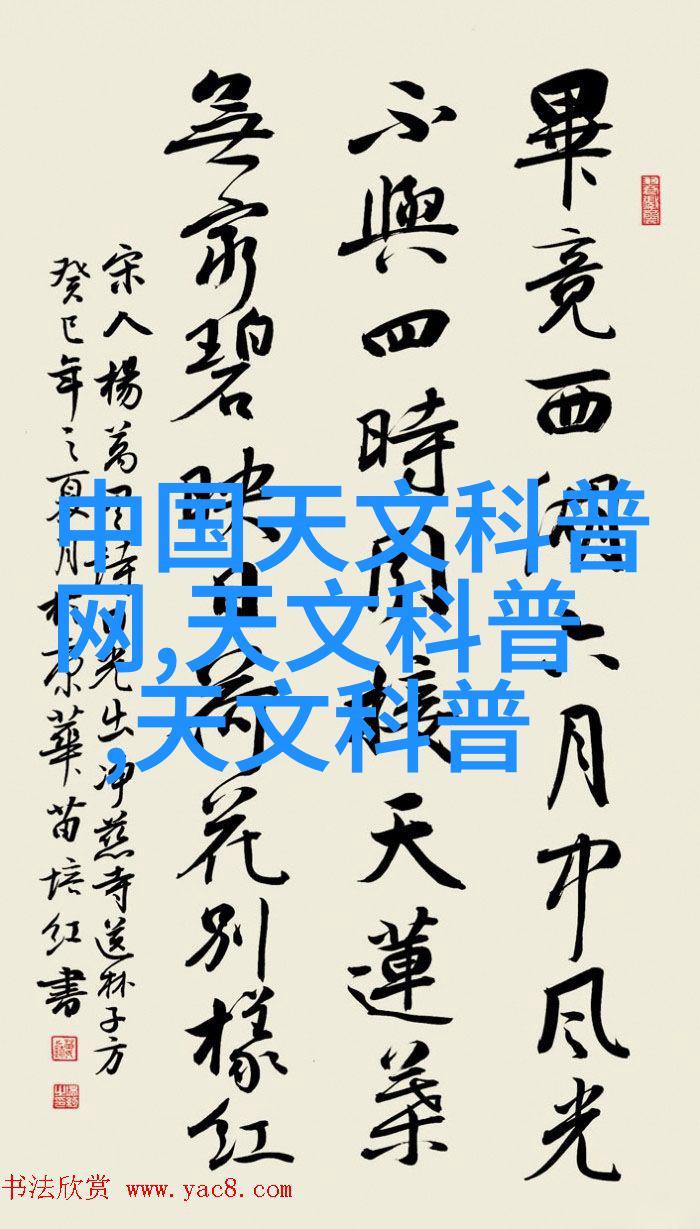 畢竟西湖六月中风光
不與四時同接天蓮葉
無窮碧映日荷花别樣红
宋人楊萬里詩光出净慈寺送林子方
癸巳年之夏月華苗培红書
中国天文科普
网,天文科普
,天文科普
书法欣赏 www.yac8.com